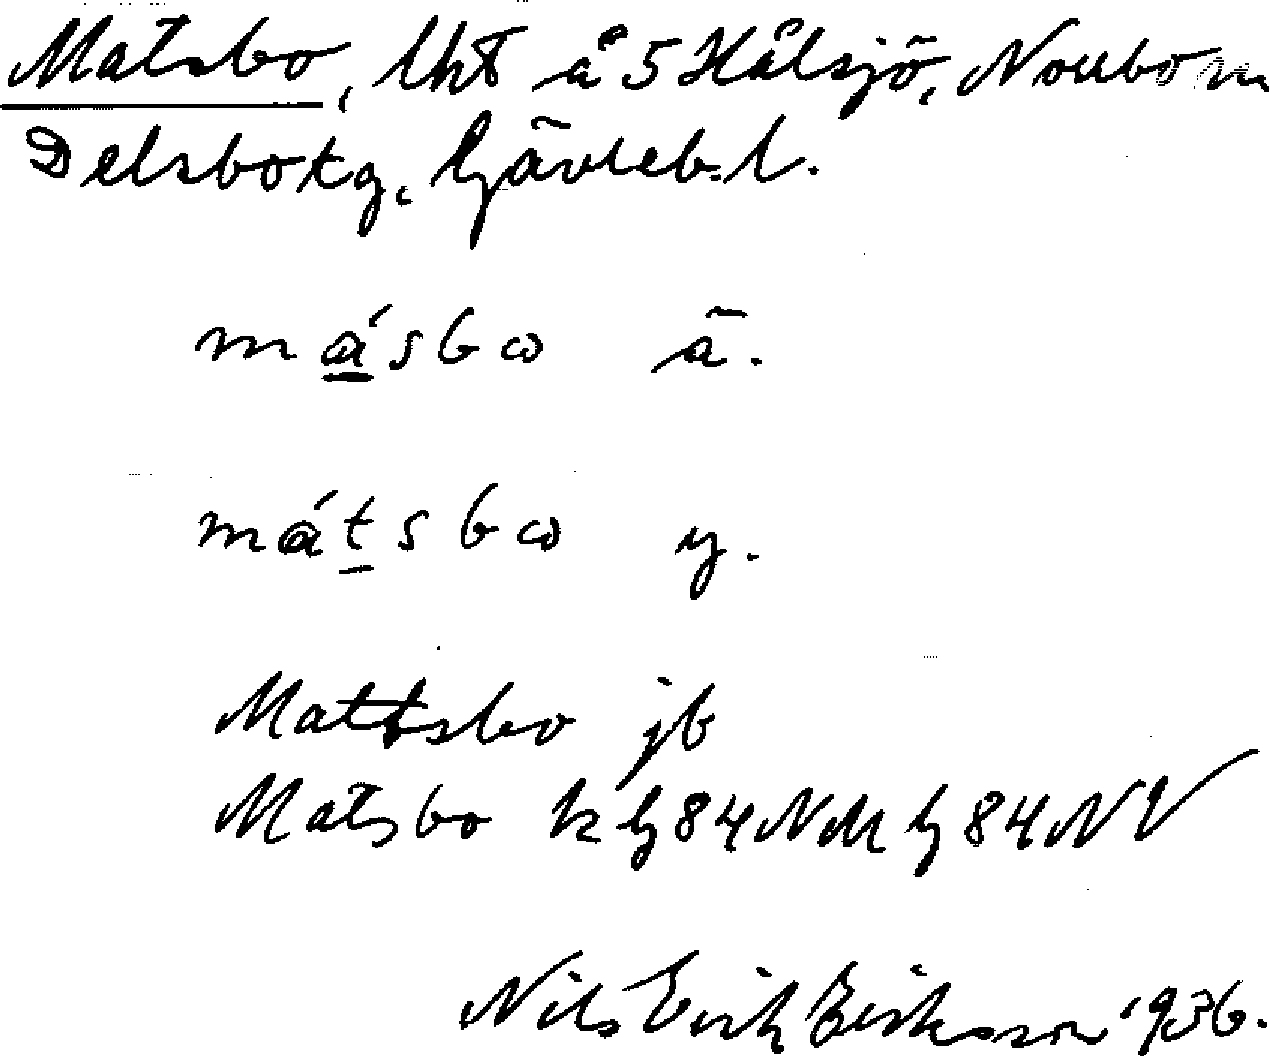 Matsbo, lht å 5 Hålsjö, Norrbo sn
Delsbo tg, Gävleb. l.
másbω ä.
mátsbω y.
Mattsbo jb
Matsbo k G84NM G84NV
Nils Erik Eriksson 1936.